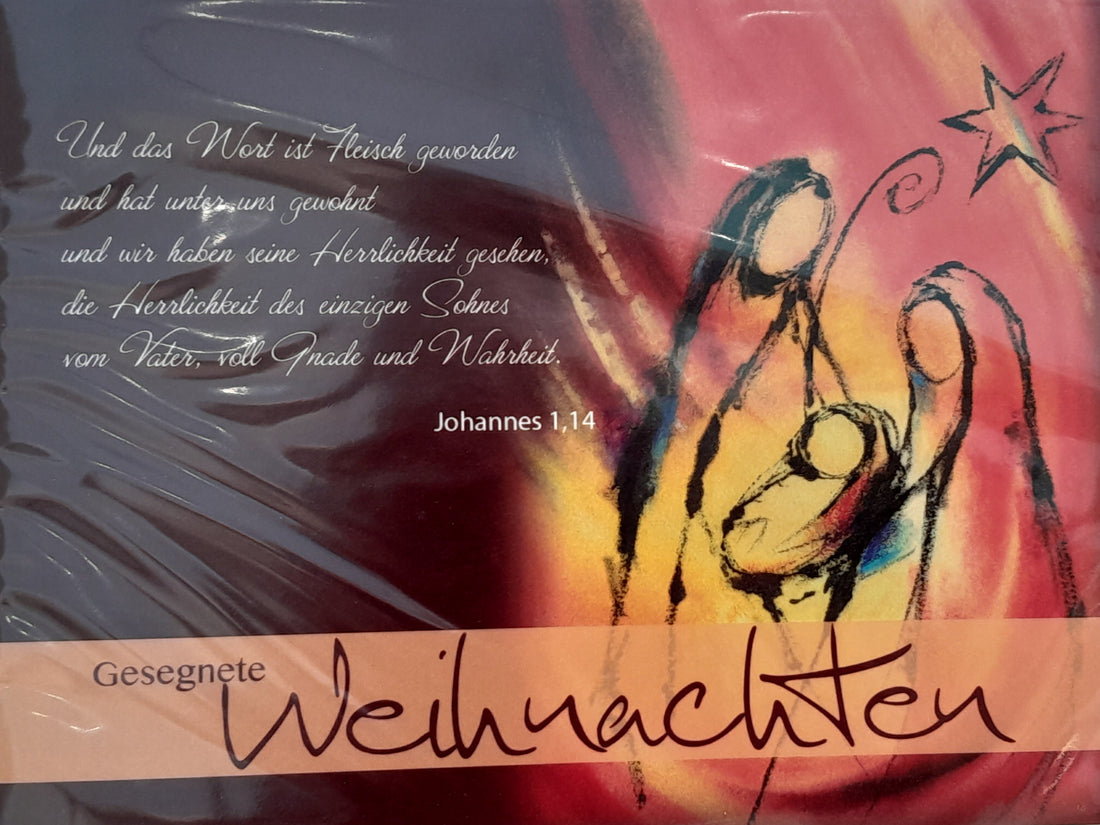 Und das Wort ist Fleisch geworden
und hat unter uns gewohnt
und wir haben seine Herrlichkeit gesehen,
die Herrlichkeit des einzigen Sohnes
vom Vater, voll Gnade und Wahrheit.
Johannes 1,14
Gesegnete
Weihnachten